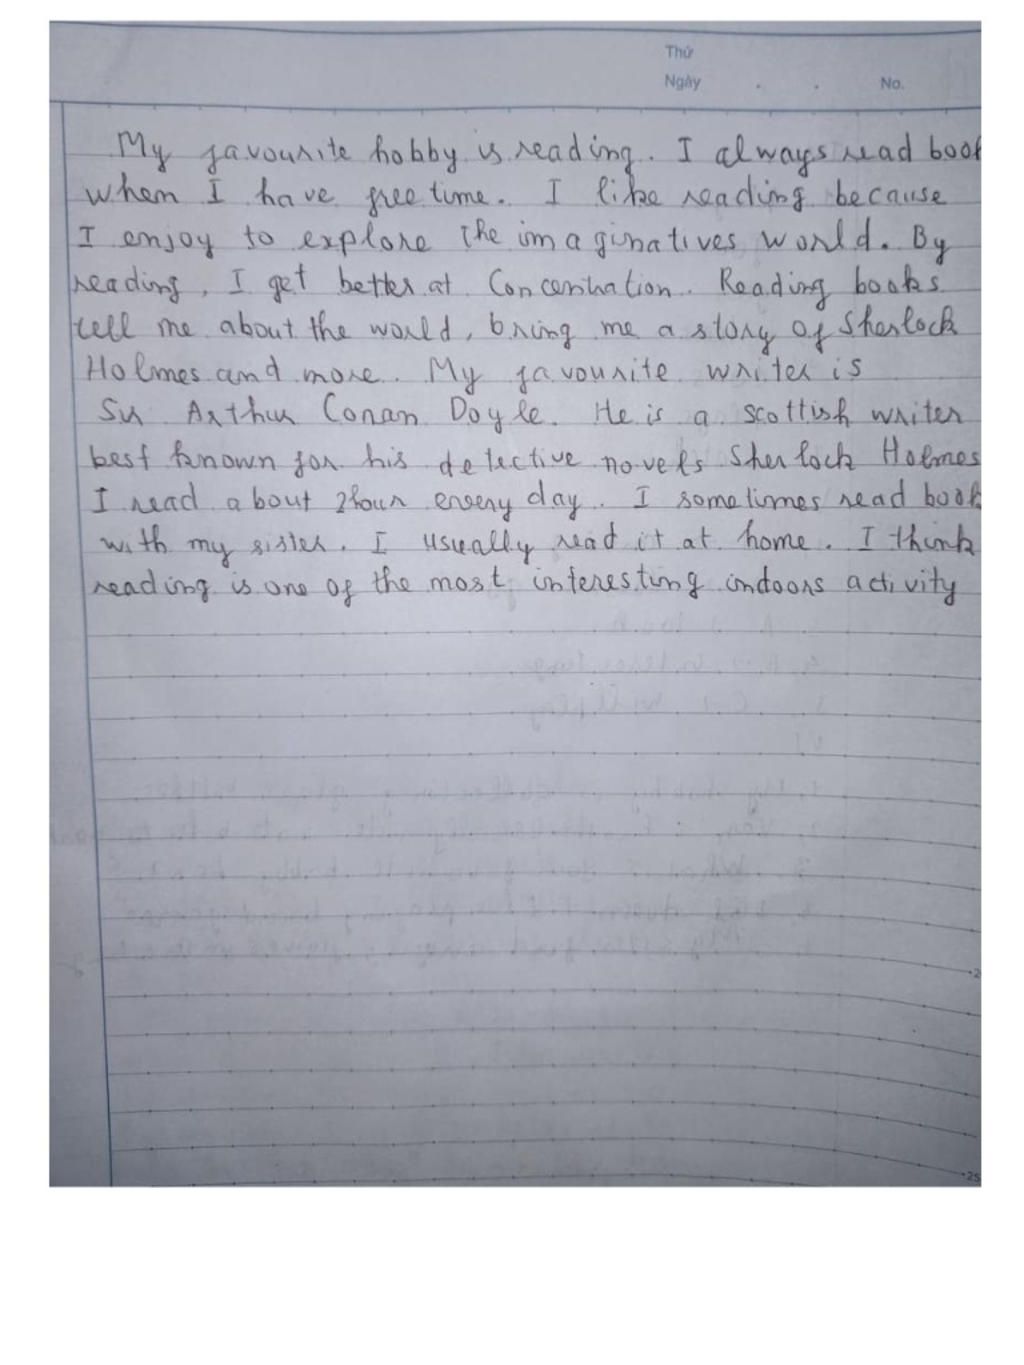 Thứ
Ngày . . No.
My favourite hobby is reading. I always read book
when I have free time. I like reading because
I enjoy to explore the imaginatives world. By
reading, I get better at Concentration. Reading books
tell me about the world, bring me a story of Sherlock
Holmes and more. My favourite writer is
Sir Arthur Conan Doyle. He is a scottish writer
best known for his detective novels Sherlock Holmes
I read about 2hour every day. I sometimes read book
with my sister. I usually read it at home. I think
reading is one of the most interesting indoors activity
25